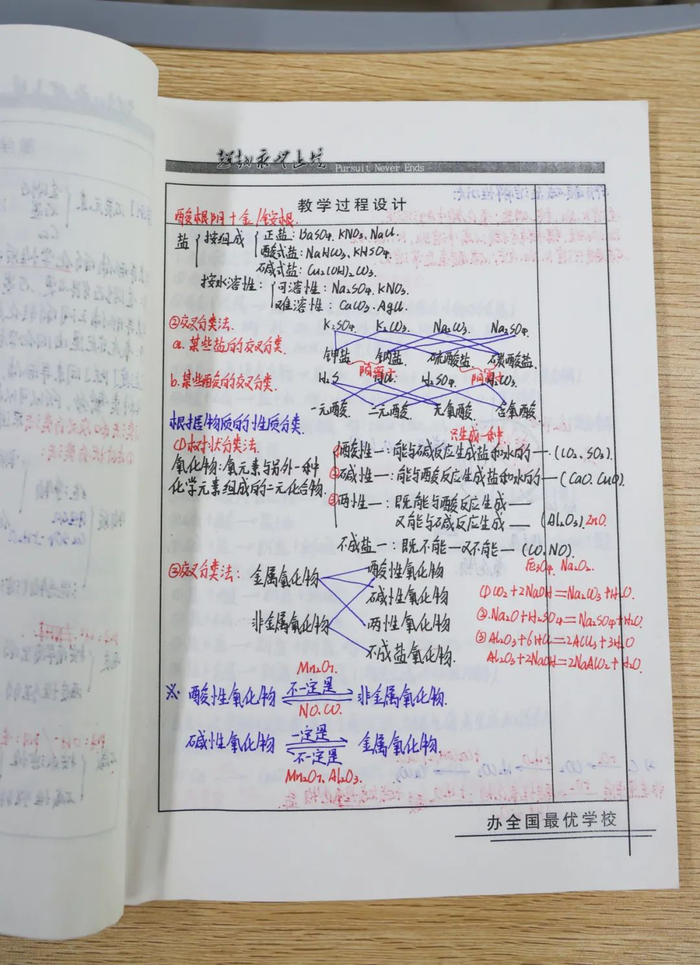 Pursuit Never Ends
教学过程设计
酸根阴+金/铵根.
盐 按组成 正盐: BaSO₄. KNO₃. NaCl.
酸式盐: NaHCO₃. KHSO₄.
碱式盐: Cu₂(OH)₂CO₃.
按水溶性: 可溶性: Na₂SO₄. KNO₃.
难溶性: CaCO₃. AgCl.
②交叉分类法.
K₂SO₄ K₂CO₃ Na₂CO₃ Na₂SO₄.
a. 某些盐的交叉分类.
钾盐 钠盐 硫酸盐 碳酸盐.
阳离子 阴离子
b. 某些酸的交叉分类.
H₂S HCl H₂SO₄ H₂CO₃.
一元酸 二元酸 无氧酸 含氧酸
根据物质的性质分类.
只生成一种
(1)树状分类法.
氧化物: 氧元素与另外一种
化学元素组成的二元化合物.
①酸性一: 能与碱反应生成盐和水的一 (CO₂. SO₂).
②碱性一: 能与酸反应生成盐和水的一 (CaO. CuO).
③两性一: 既能与酸反应生成——
又能与碱反应生成—— (Al₂O₃). ZnO.
不成盐一: 既不能一又不能一 (CO. NO).
Fe₃O₄. Na₂O₂.
②交叉分类法: 金属氧化物 酸性氧化物
碱性氧化物
非金属氧化物 两性氧化物
不成盐氧化物.
(1)CO₂+2NaOH=Na₂CO₃+H₂O.
②.Na₂O+H₂SO₄=Na₂SO₄+H₂O.
③Al₂O₃+6HCl=2AlCl₃+3H₂O
Al₂O₃+2NaOH=2NaAlO₂+H₂O.
Mn₂O₇.
※ 酸性氧化物 不一定是 非金属氧化物.
NO. CO.
碱性氧化物 一定是 金属氧化物.
不一定是
Mn₂O₇. Al₂O₃.
办全国最优学校